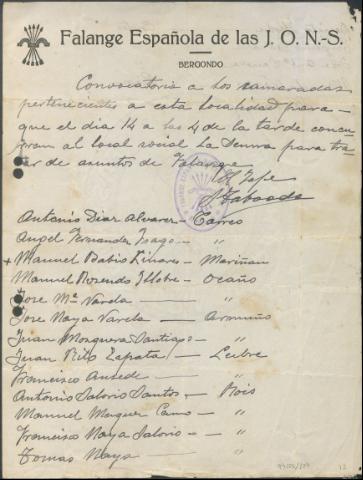 Falange Española de las J. O. N.-S.
BERGONDO
Convocatoria a los camaradas
pertenecientes a esta localidad para
que el dia 14 a las 4 de la tarde concu
rran al local social La Senra para tra
tar de asuntos de Falange
El Jefe
J. Taboada
Antonio Diaz Alvarez - Carrio
Angel Fernandez - "
+ Manuel Babio Liñares - Mariñan
Manuel Rosendo Illobre - Ocaño
Jose Mª Varela - "
Jose Naya Varela - Armuño
Juan Mosquera Santiago - "
Juan Rilo Zapata - Leibre
Francisco Ansede - "
Antonio Salorio Santos - Rois
Manuel Moquer Cano - "
Francisco Naya Salorio - "
Tomas Naya - "
12